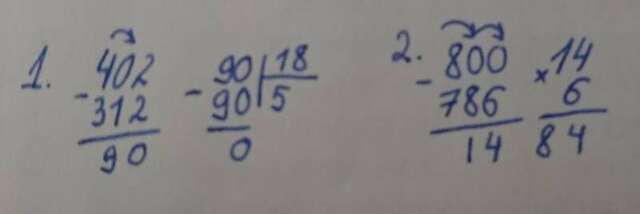 1. - 402
312
90
- 90 | 18
90 | 5
0
2. - 800
786
14
× 14
6
84